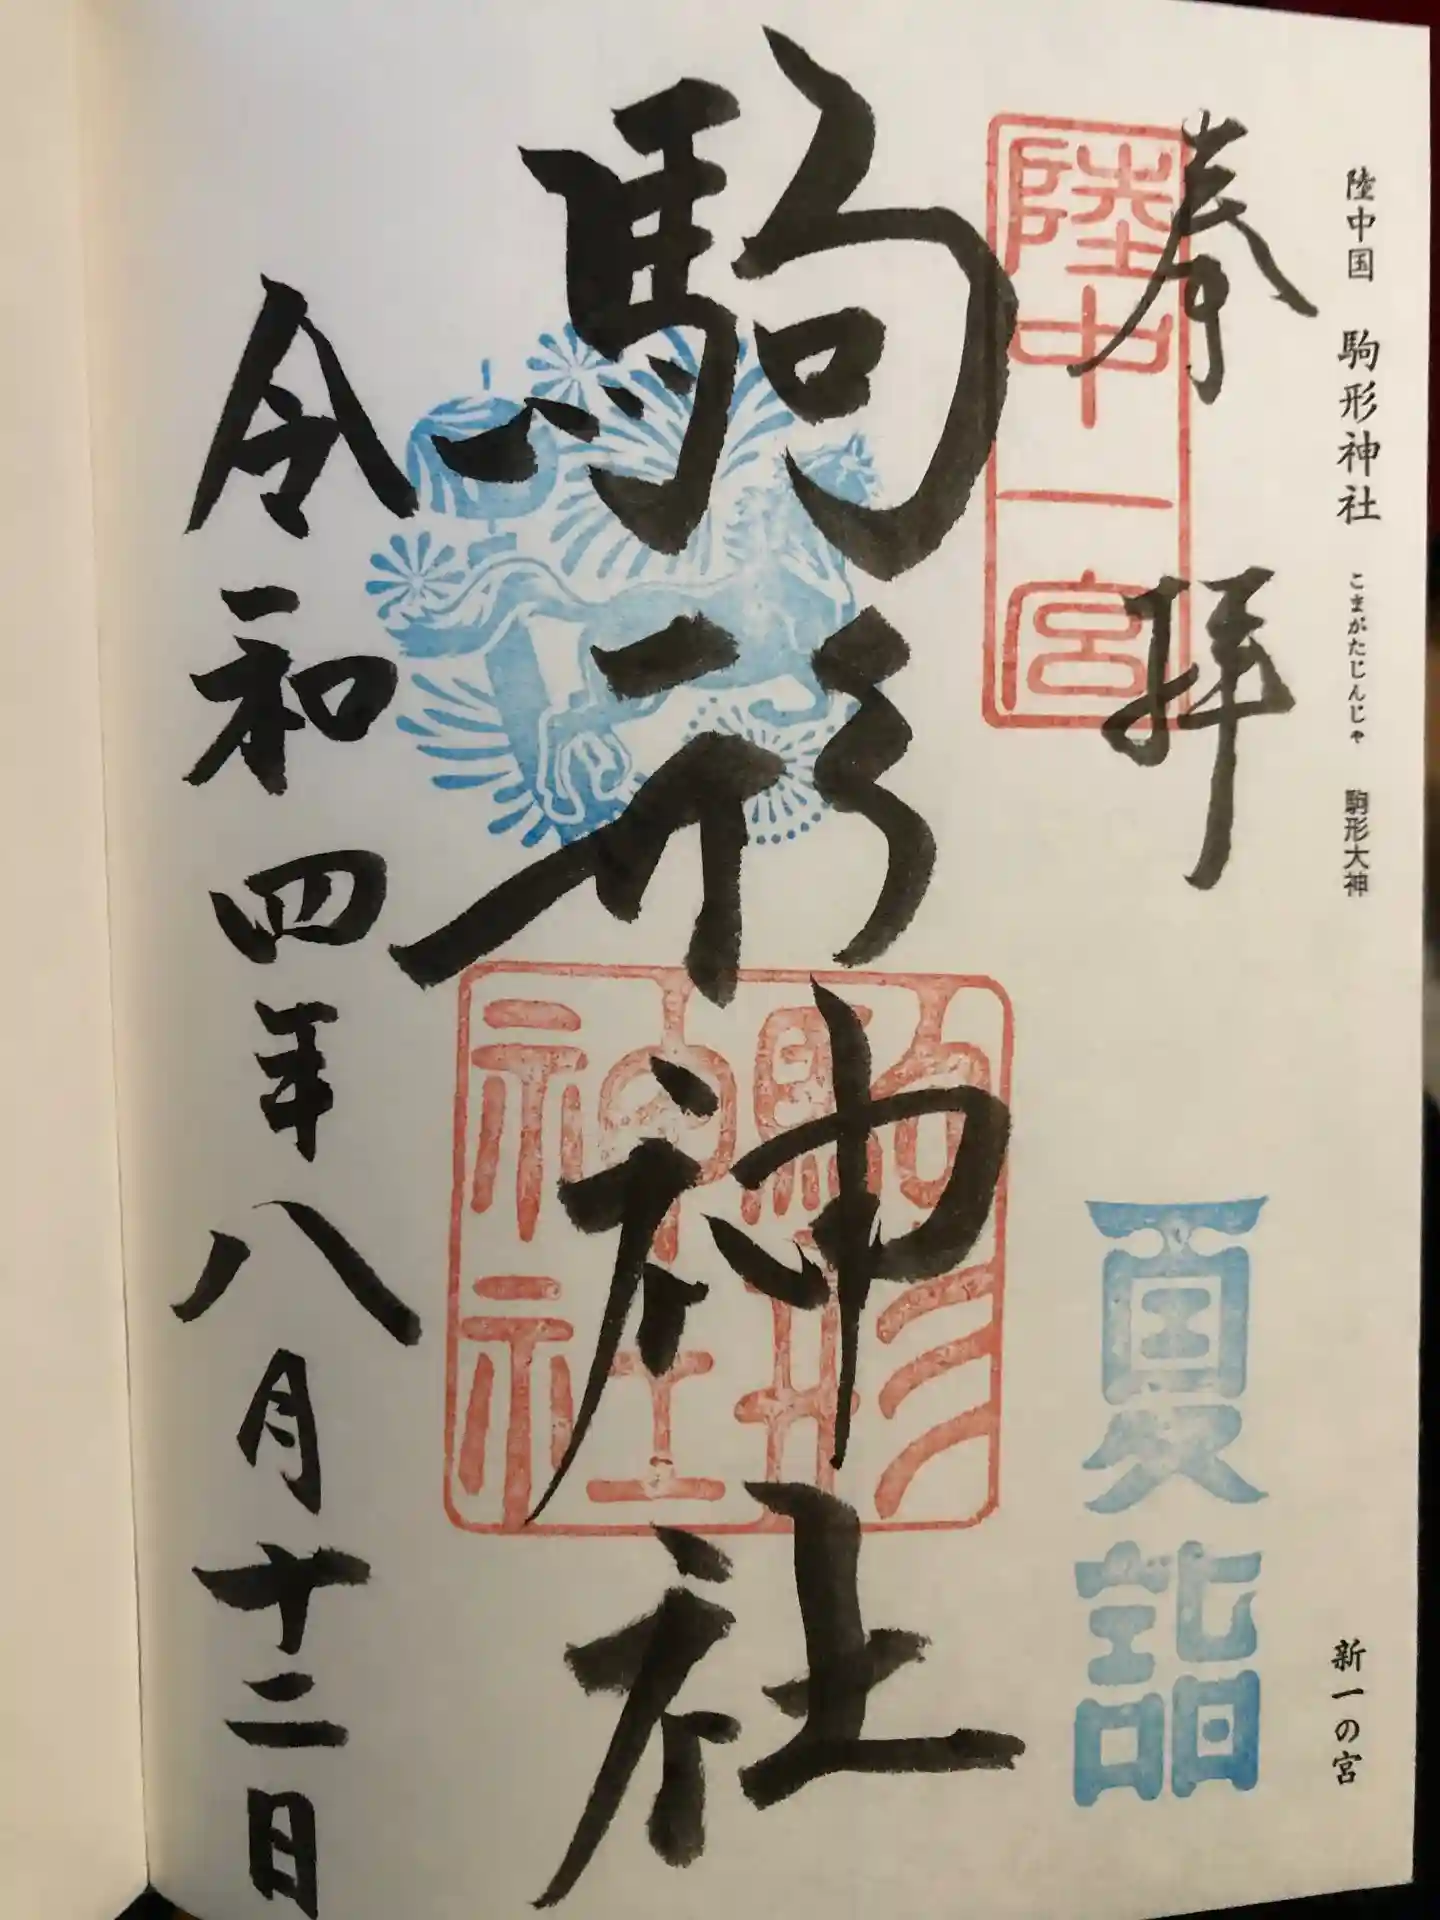 陸中国 駒形神社 こまがたじんじゃ 駒形大神 新一の宮
奉拝
陸中一宮
夏詣
駒形神社
駒形神社
令和四年八月十二日